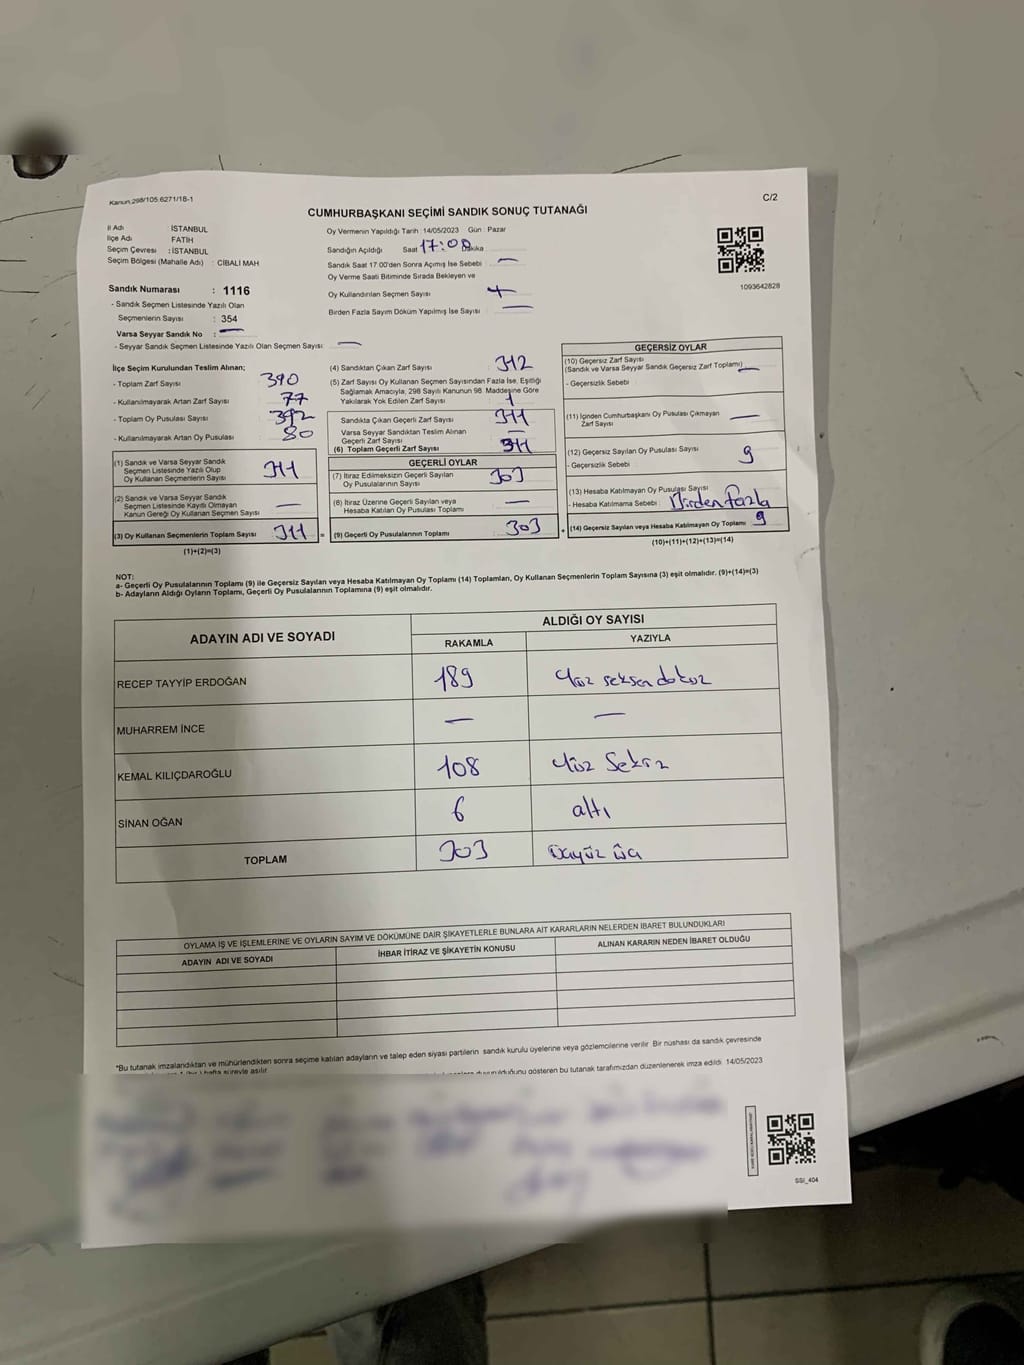 Kanun.298/105.6271/18-1
C/2
CUMHURBAŞKANI SEÇİMİ SANDIK SONUÇ TUTANAĞI
İl Adı İSTANBUL
İlçe Adı FATİH
Seçim Çevresi : İSTANBUL
Seçim Bölgesi (Mahalle Adı) : CİBALİ MAH
Sandık Numarası : 1116
- Sandık Seçmen Listesinde Yazılı Olan
Seçmenlerin Sayısı : 354
Varsa Seyyar Sandık No : —
- Seyyar Sandık Seçmen Listesinde Yazılı Olan Seçmen Sayısı —
Oy Vermenin Yapıldığı Tarih : 14/05/2023 Gün : Pazar
Sandığın Açıldığı Saat 17:00 Dakika
Sandık Saat 17.00'den Sonra Açılmış İse Sebebi —
Oy Verme Saati Bitiminde Sırada Bekleyen ve
Oy Kullandırılan Seçmen Sayısı
Birden Fazla Sayım Döküm Yapılmış İse Sayısı —
1093642828
İlçe Seçim Kurulundan Teslim Alınan;
- Toplam Zarf Sayısı 390
- Kullanılmayarak Artan Zarf Sayısı 77
- Toplam Oy Pusulası Sayısı 392
- Kullanılmayarak Artan Oy Pusulası 80
(1) Sandık ve Varsa Seyyar Sandık
Seçmen Listesinde Yazılı Olup
Oy Kullanan Seçmenlerin Sayısı 311
(2) Sandık ve Varsa Seyyar Sandık
Seçmen Listesinde Kayıtlı Olmayan
Kanun Gereği Oy Kullanan Seçmen Sayısı —
(3) Oy Kullanan Seçmenlerin Toplam Sayısı 311 =
(1)+(2)=(3)
(4) Sandıktan Çıkan Zarf Sayısı 312
(5) Zarf Sayısı Oy Kullanan Seçmen Sayısından Fazla İse, Eşitliği
Sağlamak Amacıyla, 298 Sayılı Kanunun 98. Maddesine Göre
Yakılarak Yok Edilen Zarf Sayısı 1
Sandıkta Çıkan Geçerli Zarf Sayısı 311
Varsa Seyyar Sandıktan Teslim Alınan
Geçerli Zarf Sayısı —
(6) Toplam Geçerli Zarf Sayısı 311
GEÇERLİ OYLAR
(7) İtiraz Edilmeksizin Geçerli Sayılan
Oy Pusulasının Sayısı 303
(8) İtiraz Üzerine Geçerli Sayılan veya
Hesaba Katılan Oy Pusulası Toplamı —
(9) Geçerli Oy Pusulalarının Toplamı 303 +
GEÇERSİZ OYLAR
(10) Geçersiz Zarf Sayısı
(Sandık ve Varsa Seyyar Sandık Geçersiz Zarf Toplamı) —
- Geçersizlik Sebebi
(11) İçinden Cumhurbaşkanı Oy Pusulası Çıkmayan
Zarf Sayısı —
(12) Geçersiz Sayılan Oy Pusulası Sayısı 9
- Geçersizlik Sebebi
(13) Hesaba Katılmayan Oy Pusulası Sayısı
- Hesaba Katılmama Sebebi : Birden fazla
(14) Geçersiz Sayılan veya Hesaba Katılmayan Oy Toplamı 9
(10)+(11)+(12)+(13)=(14)
NOT:
a- Geçerli Oy Pusulalarının Toplamı (9) ile Geçersiz Sayılan veya Hesaba Katılmayan Oy Toplamı (14) Toplamları, Oy Kullanan Seçmenlerin Toplam Sayısına (3) eşit olmalıdır. (9)+(14)=(3)
b- Adayların Aldığı Oyların Toplamı, Geçerli Oy Pusulalarının Toplamına (9) eşit olmalıdır.
ADAYIN ADI VE SOYADI
ALDIĞI OY SAYISI
RAKAMLA YAZIYLA
RECEP TAYYİP ERDOĞAN 189 Yüz seksen dokuz
MUHARREM İNCE — —
KEMAL KILIÇDAROĞLU 108 Yüz Sekiz
SİNAN OĞAN 6 altı
TOPLAM 303
OYLAMA İŞ VE İŞLEMLERİNE VE OYLARIN SAYIM VE DÖKÜMÜNE DAİR ŞİKAYETLERLE BUNLARA AİT KARARLARIN NELERDEN İBARET BULUNDUKLARI
ADAYIN ADI VE SOYADI İHBAR İTİRAZ VE ŞİKAYETİN KONUSU ALINAN KARARIN NEDEN İBARET OLDUĞU
*Bu tutanak imzalandıktan ve mühürlendikten sonra seçime katılan adayların ve talep eden siyasi partilerin sandık kurulu üyelerine veya gözlemcilerine verilir. Bir nüshası da sandık çevresinde
hafta süreyle asılır. gösteren bu tutanak tarafımızdan düzenlenerek imza edildi. 14/05/2023
SSI_404